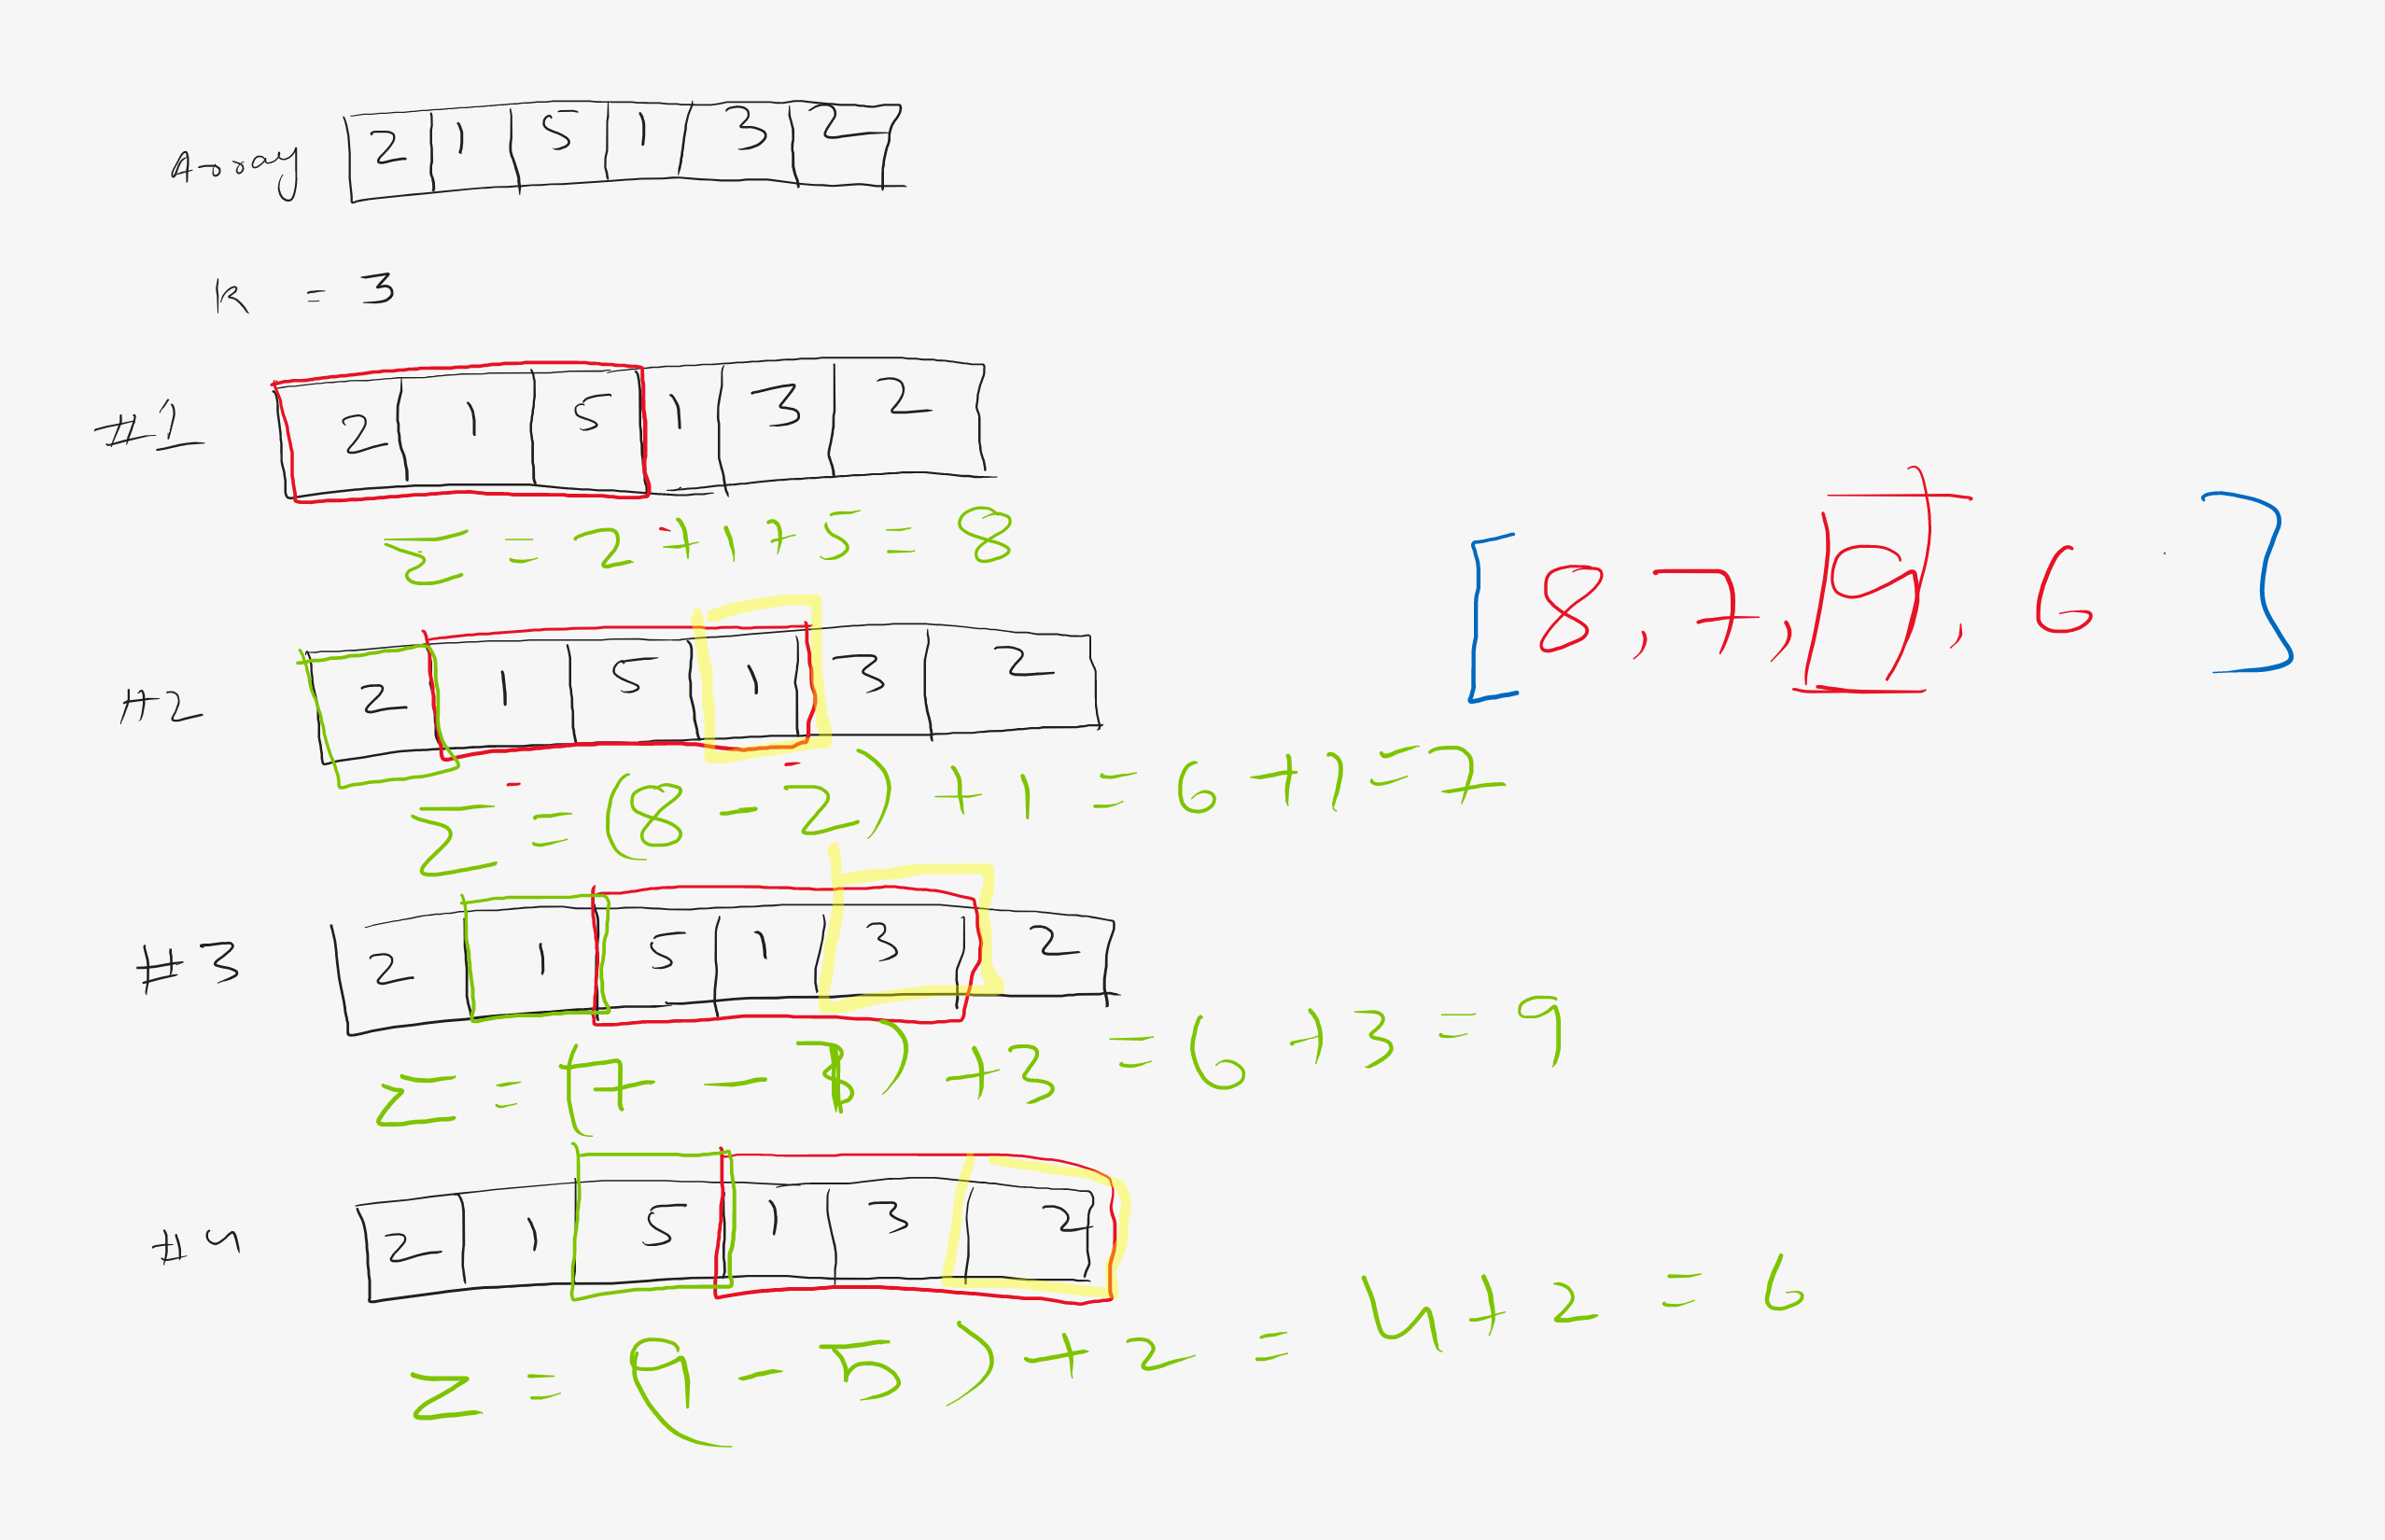 Array 2 1 5 1 3 2
K = 3
#1 2 1 5 1 3 2
Σ = 2 + 1 + 5 = 8
[8, 7, 9, 6]
#2 2 1 5 1 3 2
Σ = (8 - 2) + 1 = 6 + 1 = 7
#3 2 1 5 1 3 2
Σ = (7 - 1) + 3 = 6 + 3 = 9
#4 2 1 5 1 3 2
Σ = (9 - 5) + 2 = 4 + 2 = 6